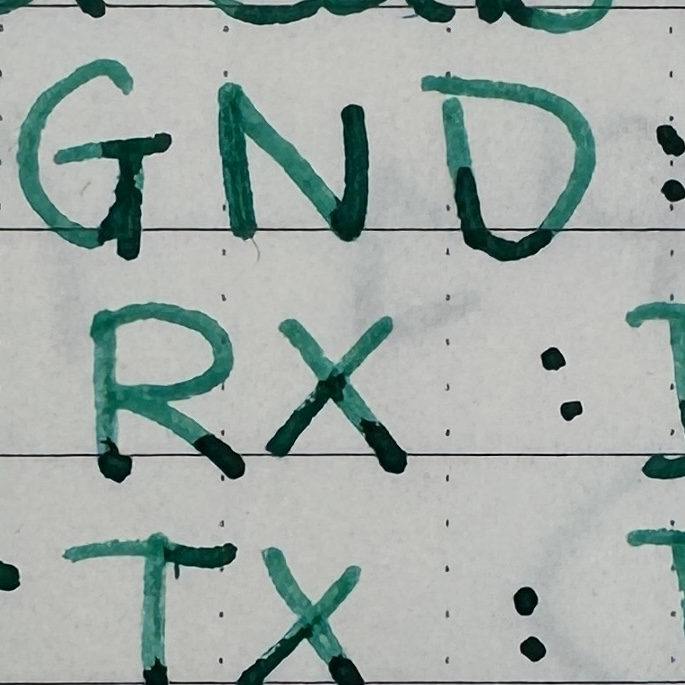 GND :
RX :
TX :